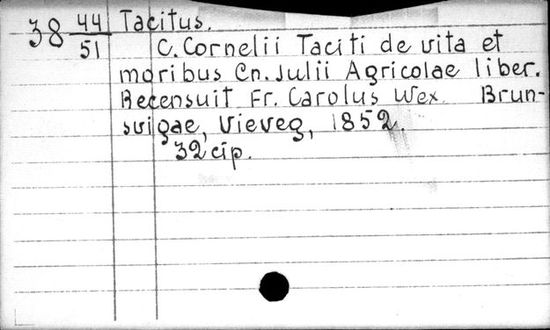 38 44/51 Tacitus.
C. Cornelii Taciti de vita et
moribus Cn. Julii Agricolae liber.
Recensuit Fr. Carolus Wex. Brun-
svigae, Vieveg, 1852.
32 cip.